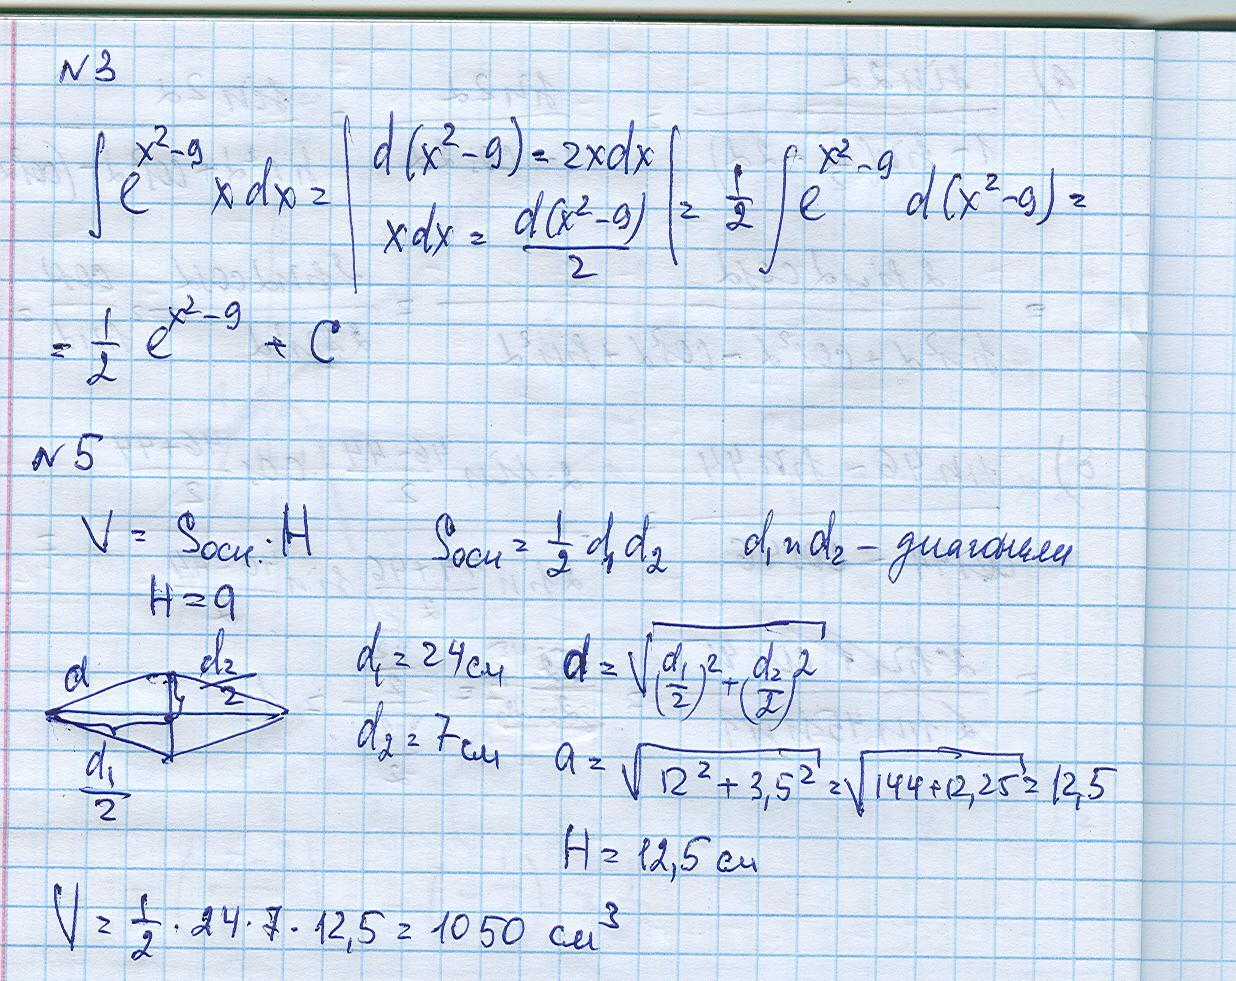 №3
∫e^(x²-9) x dx = | d(x²-9) = 2xdx
xdx = d(x²-9)/2 | = 1/2 ∫e^(x²-9) d(x²-9) =
= 1/2 e^(x²-9) + C
№5
V = Sосн. · H   Sосн = 1/2 d₁ d₂   d₁ и d₂ – диагонали
H = a
a   d₂/2   d₁ = 24 см   a = √((d₁/2)² + (d₂/2)²)
d₁/2   d₂ = 7 см   a = √(12² + 3,5²) = √(144+12,25) = 12,5
H = 12,5 см
V = 1/2 · 24 · 7 · 12,5 = 1050 см³